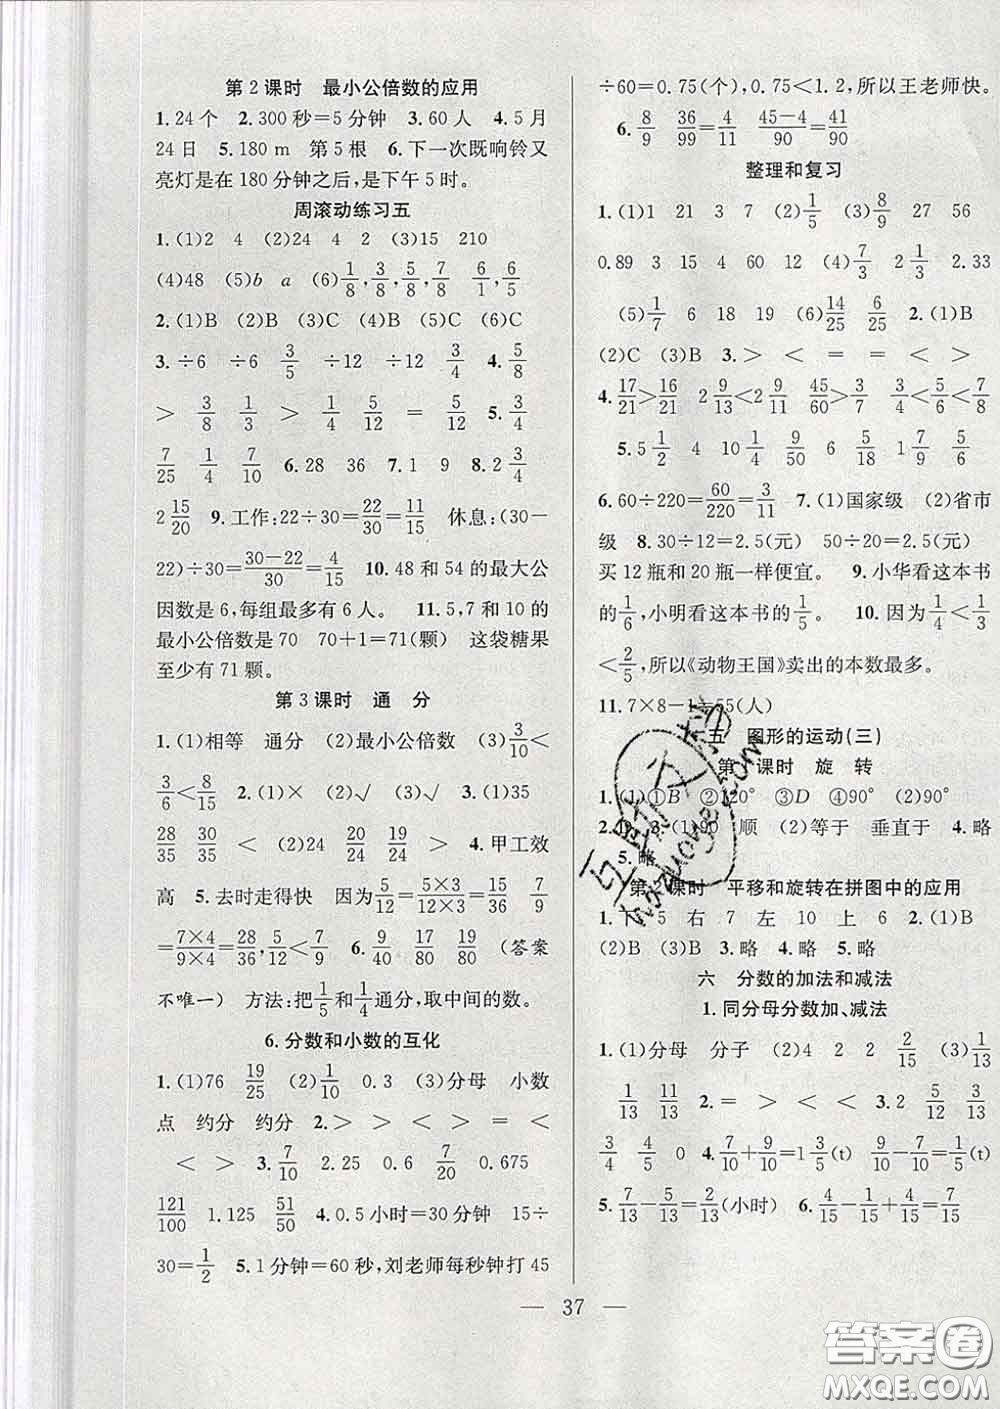 第2课时 最小公倍数的应用
1.24个 2.300秒=5分钟 3.60人 4.5月
24日 5.180 m 第5根 6.下一次既响铃又
亮灯是在180分钟之后,是下午5时。
周滚动练习五
1.(1)2 4 (2)24 4 2 (3)15 210
(4)48 (5)b a (6)1/8,3/8,5/8,7/8 6/1,6/5
2.(1)B (2)B (3)C (4)B (5)B (6)C
3.÷6 ÷6 3/5 ÷12 ÷12 3/4 4.5/8
> 3/8 1/3 > 1/4 5/12 = 5/12 5.3/4
7/25 1/4 7/10 6.28 36 7.1 9 8.2 3/4
2 15/20 9.工作:22÷30=22/30=11/15 休息:(30-
22)÷30=30-22/30=4/15 10.48和54的最大公
因数是6,每组最多有6人。 11.5,7和10的
最小公倍数是70 70+1=71(颗) 这袋糖果
至少有71颗。
第3课时 通 分
1.(1)相等 通分 (2)最小公倍数 (3)3/10<
3/6<8/15 2.(1)× (2)√ (3)√ 3.(1)35
28/35 30/35 < (2)24 20/24 19/24 > 4.甲工效
高 5.去时走得快 因为5/12=5×3/12×3=15/36 7/9
=7×4/9×4=28/36,5/12<7/9 6.9/40 17/80 19/80 (答案
不唯一) 方法:把1/5和1/4通分,取中间的数。
6.分数和小数的互化
1.(1)76 19/25 (2)1/10 0.3 (3)分母 小数
点 约分 约分 2.> > < > = <
< > 3.7/10 2.25 0.6 7/20 0.675
121/100 1.125 51/50 4.0.5小时=30分钟 15÷
30=1/2 5.1分钟=60秒,刘老师每秒钟打45
÷60=0.75(个),0.75<1.2,所以王老师快。
6.8/9 36/99=4/11 45-4/90=41/90
整理和复习
1.(1)1 21 3 7 (2)1/5 (3)8/9 27 56
0.89 3 15 4 60 12 (4)7/3 2 1/3 2.33
(5)1/7 6 18 (6)14/25 6/25 2.(1)B
(2)C (3)B 3.> < = = > <
4.17/21>16/21 2 9/13<2 9/11 45/60>3/7 3/4<5/6<7/8
5.5 1/2 4 10 1/4 9/50 6 1 9/50 5/8
6.60÷220=60/220=3/11 7.(1)国家级 (2)省市
级 8.30÷12=2.5(元) 50÷20=2.5(元)
买12瓶和20瓶一样便宜。 9.小华看这本书
的1/6,小明看这本书的1/5。 10.因为1/4<1/3
<2/5,所以《动物王国》卖出的本数最多。
11.7×8-1=55(人)
五 图形的运动(三)
第1课时 旋 转
1.(1)①B ②120° ③D ④90° (2)90°
2.略 3.(1)90 顺 (2)等于 垂直于 4.略
5.略
第2课时 平移和旋转在拼图中的应用
1.下 5 右 7 左 10 上 6 2.(1)B
(2)B (3)B 3.略 4.略 5.略
六 分数的加法和减法
1.同分母分数加、减法
1.(1)分母 分子 (2)4 2 2 2/15 (3)1/13
1/13 11/13 2.= > < < 3.2 5/12 3/13
3/4 4/5 0 4.7/10+9/10=1 3/5(t) 9/10-7/10=1/5(t)
5.7/13-5/13=2/13(小时) 6.4/15-1/15+4/15=7/15
37
答案圈
MXQE.COM